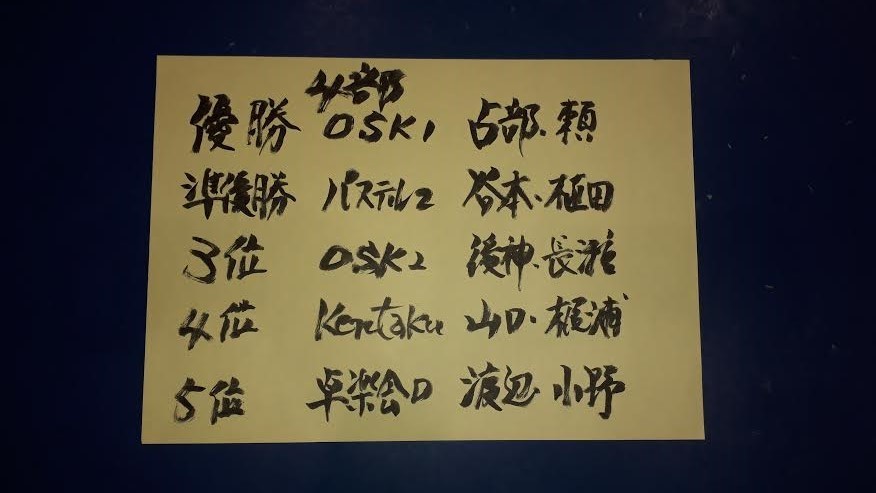 4部
優勝 OSK1 占部、頼
準優勝 パステル2 谷本・植田
3位 OSK2 後神、長瀬
4位 Kentaku 山口・梶浦
5位 卓楽会D 渡辺 小野